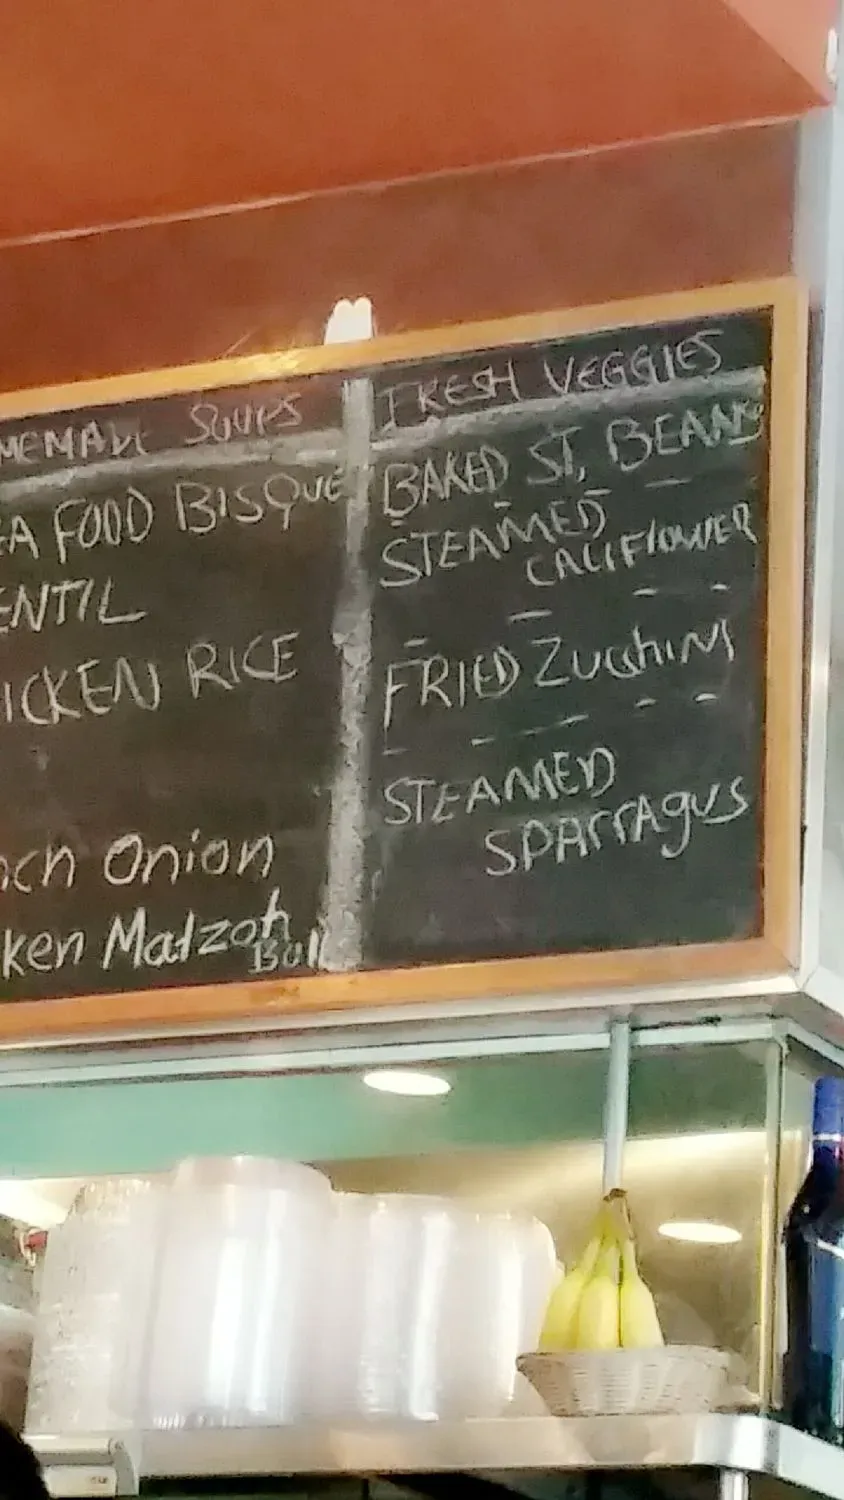 MEMADE SOUPS
EA FOOD BISQUE
ENTIL
ICKEN RICE
nch Onion
ken Matzoh
Ball
FRESH VEGGIES
BAKED ST. BEANS
STEAMED
CALIFLOWER
FRIED ZUCCHINI
STEAMED
SPARRAGUS